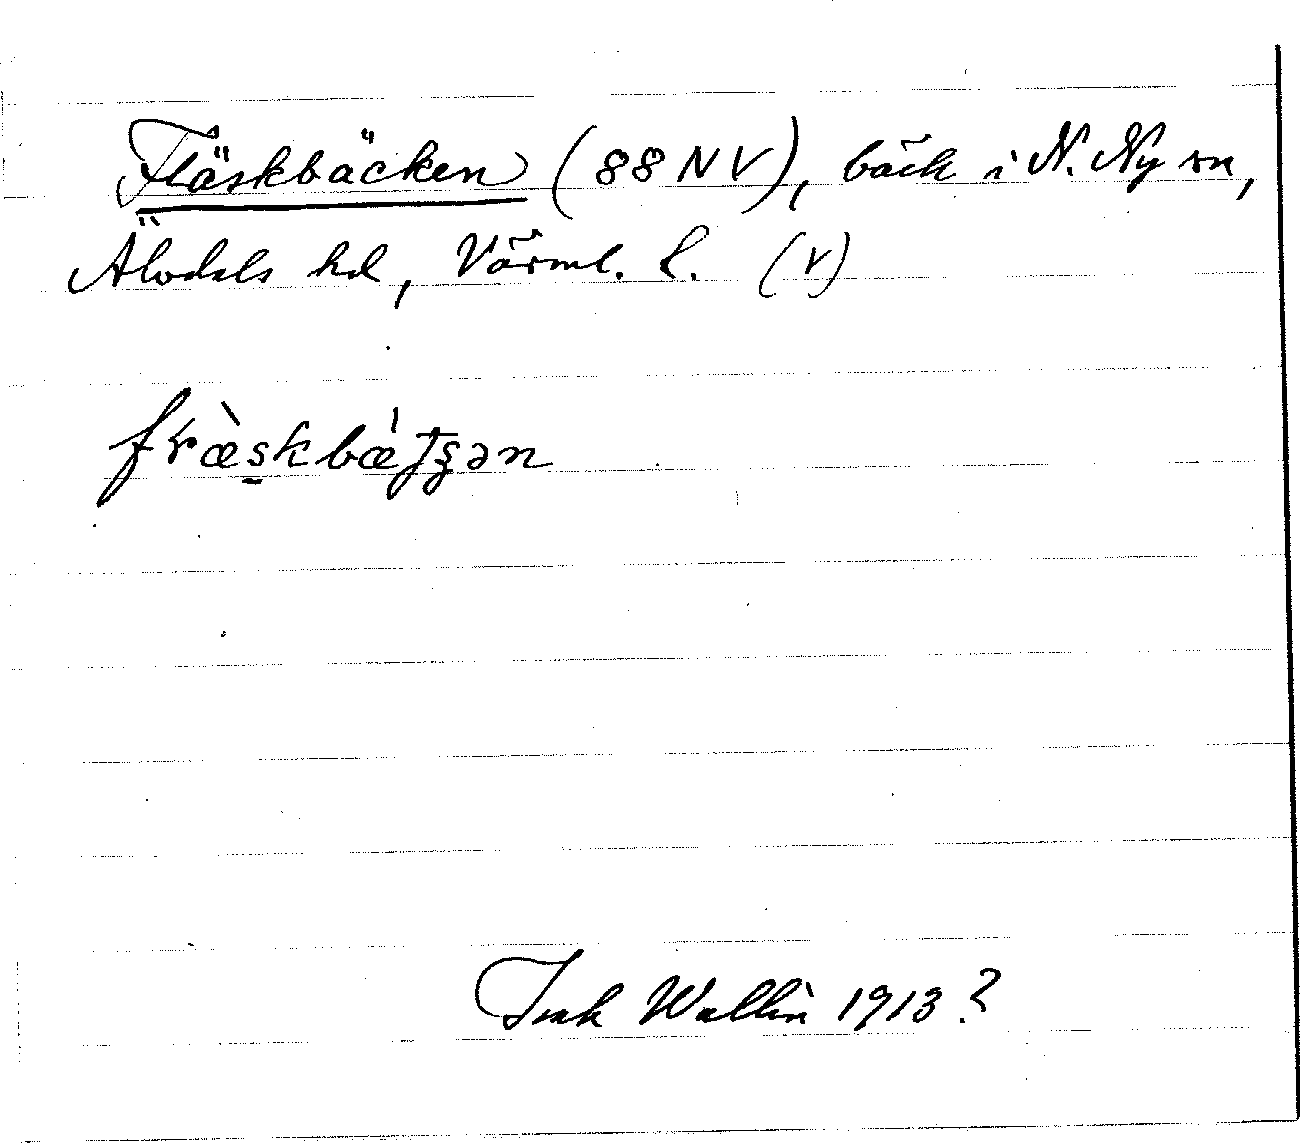 Fläskbäcken (88 NV), bäck i N. Ny sn,
Älvdals hd, Värml. l. (V)
fræ̀skbæ̀ʈʂən
Isak Wallin 1913?